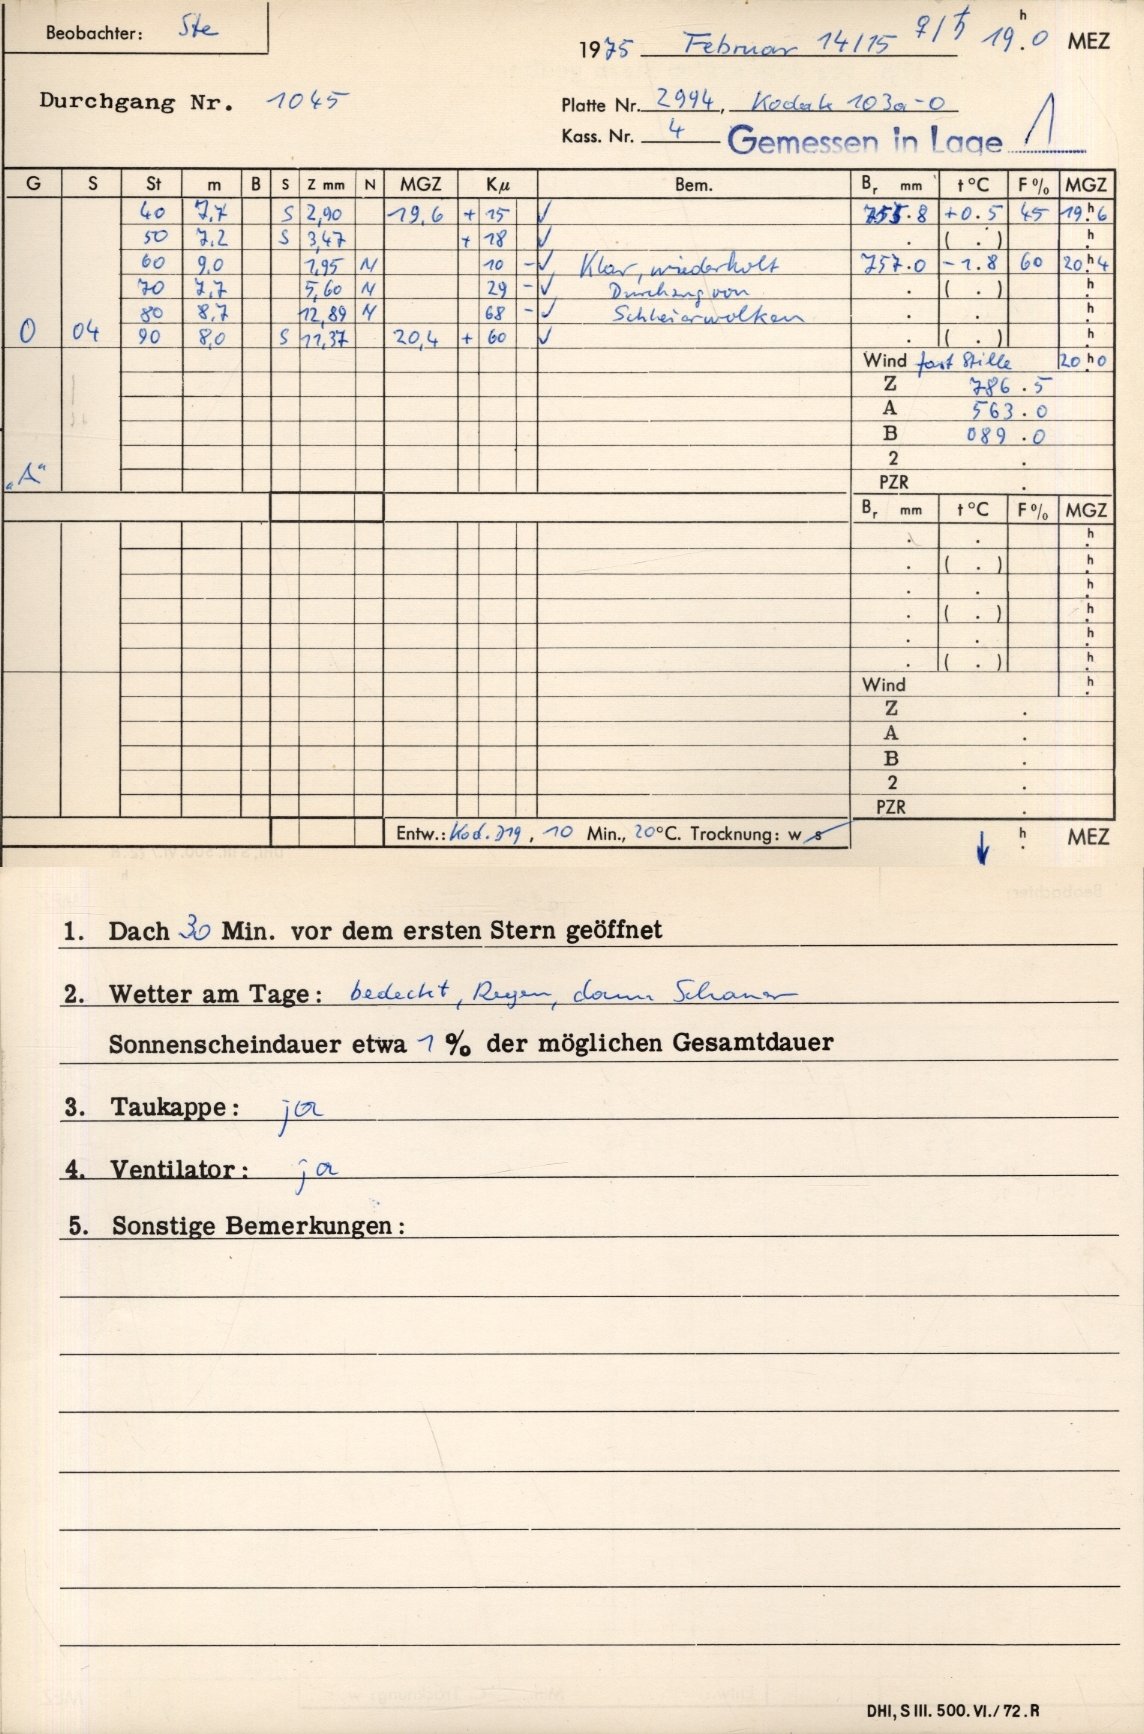 Beobachter: Ste
1975 Februar 14/15 ♀/♄ 19.ʰ0 MEZ
Durchgang Nr. 1045
Platte Nr. 2994, Kodak 103a-O
Kass. Nr. 4 Gemessen in Lage 1
G S St m B S Z mm N MGZ Kμ Bem. Bᵣ mm t °C F % MGZ
40 7,7 S 2,90 19,6 + 15 ✓ 755.8 +0.5 45 19.ʰ6
50 7,2 S 3,47 + 18 ✓ . ( . ) .ʰ
60 9,0 1,95 N 10 - ✓ Klar, wiederholt 757.0 -1.8 60 20.ʰ4
70 7,7 5,60 N 29 - ✓ Durchzug von . ( . ) .ʰ
80 8,7 12,89 N 68 - ✓ Schleierwolken . . .ʰ
0 04 90 8,0 S 11,37 20,4 + 60 ✓ . ( . ) .ʰ
Wind fast Stille 20.ʰ0
Z 786.5
A 563.0
B 089.0
2 .
"A" PZR .
Bᵣ mm t °C F % MGZ
. . .ʰ
. ( . ) .ʰ
. . .ʰ
. ( . ) .ʰ
. . .ʰ
. ( . ) .ʰ
Wind .ʰ
Z .
A .
B .
2 .
PZR .
Entw.: Kod. D19, 10 Min., 20°C. Trocknung: w s
↓ .ʰ MEZ
1. Dach 30 Min. vor dem ersten Stern geöffnet
2. Wetter am Tage: bedeckt, Regen, dann Schauer
Sonnenscheindauer etwa 1 % der möglichen Gesamtdauer
3. Taukappe: ja
4. Ventilator: ja
5. Sonstige Bemerkungen:
DHI, S III. 500. VI./72. R